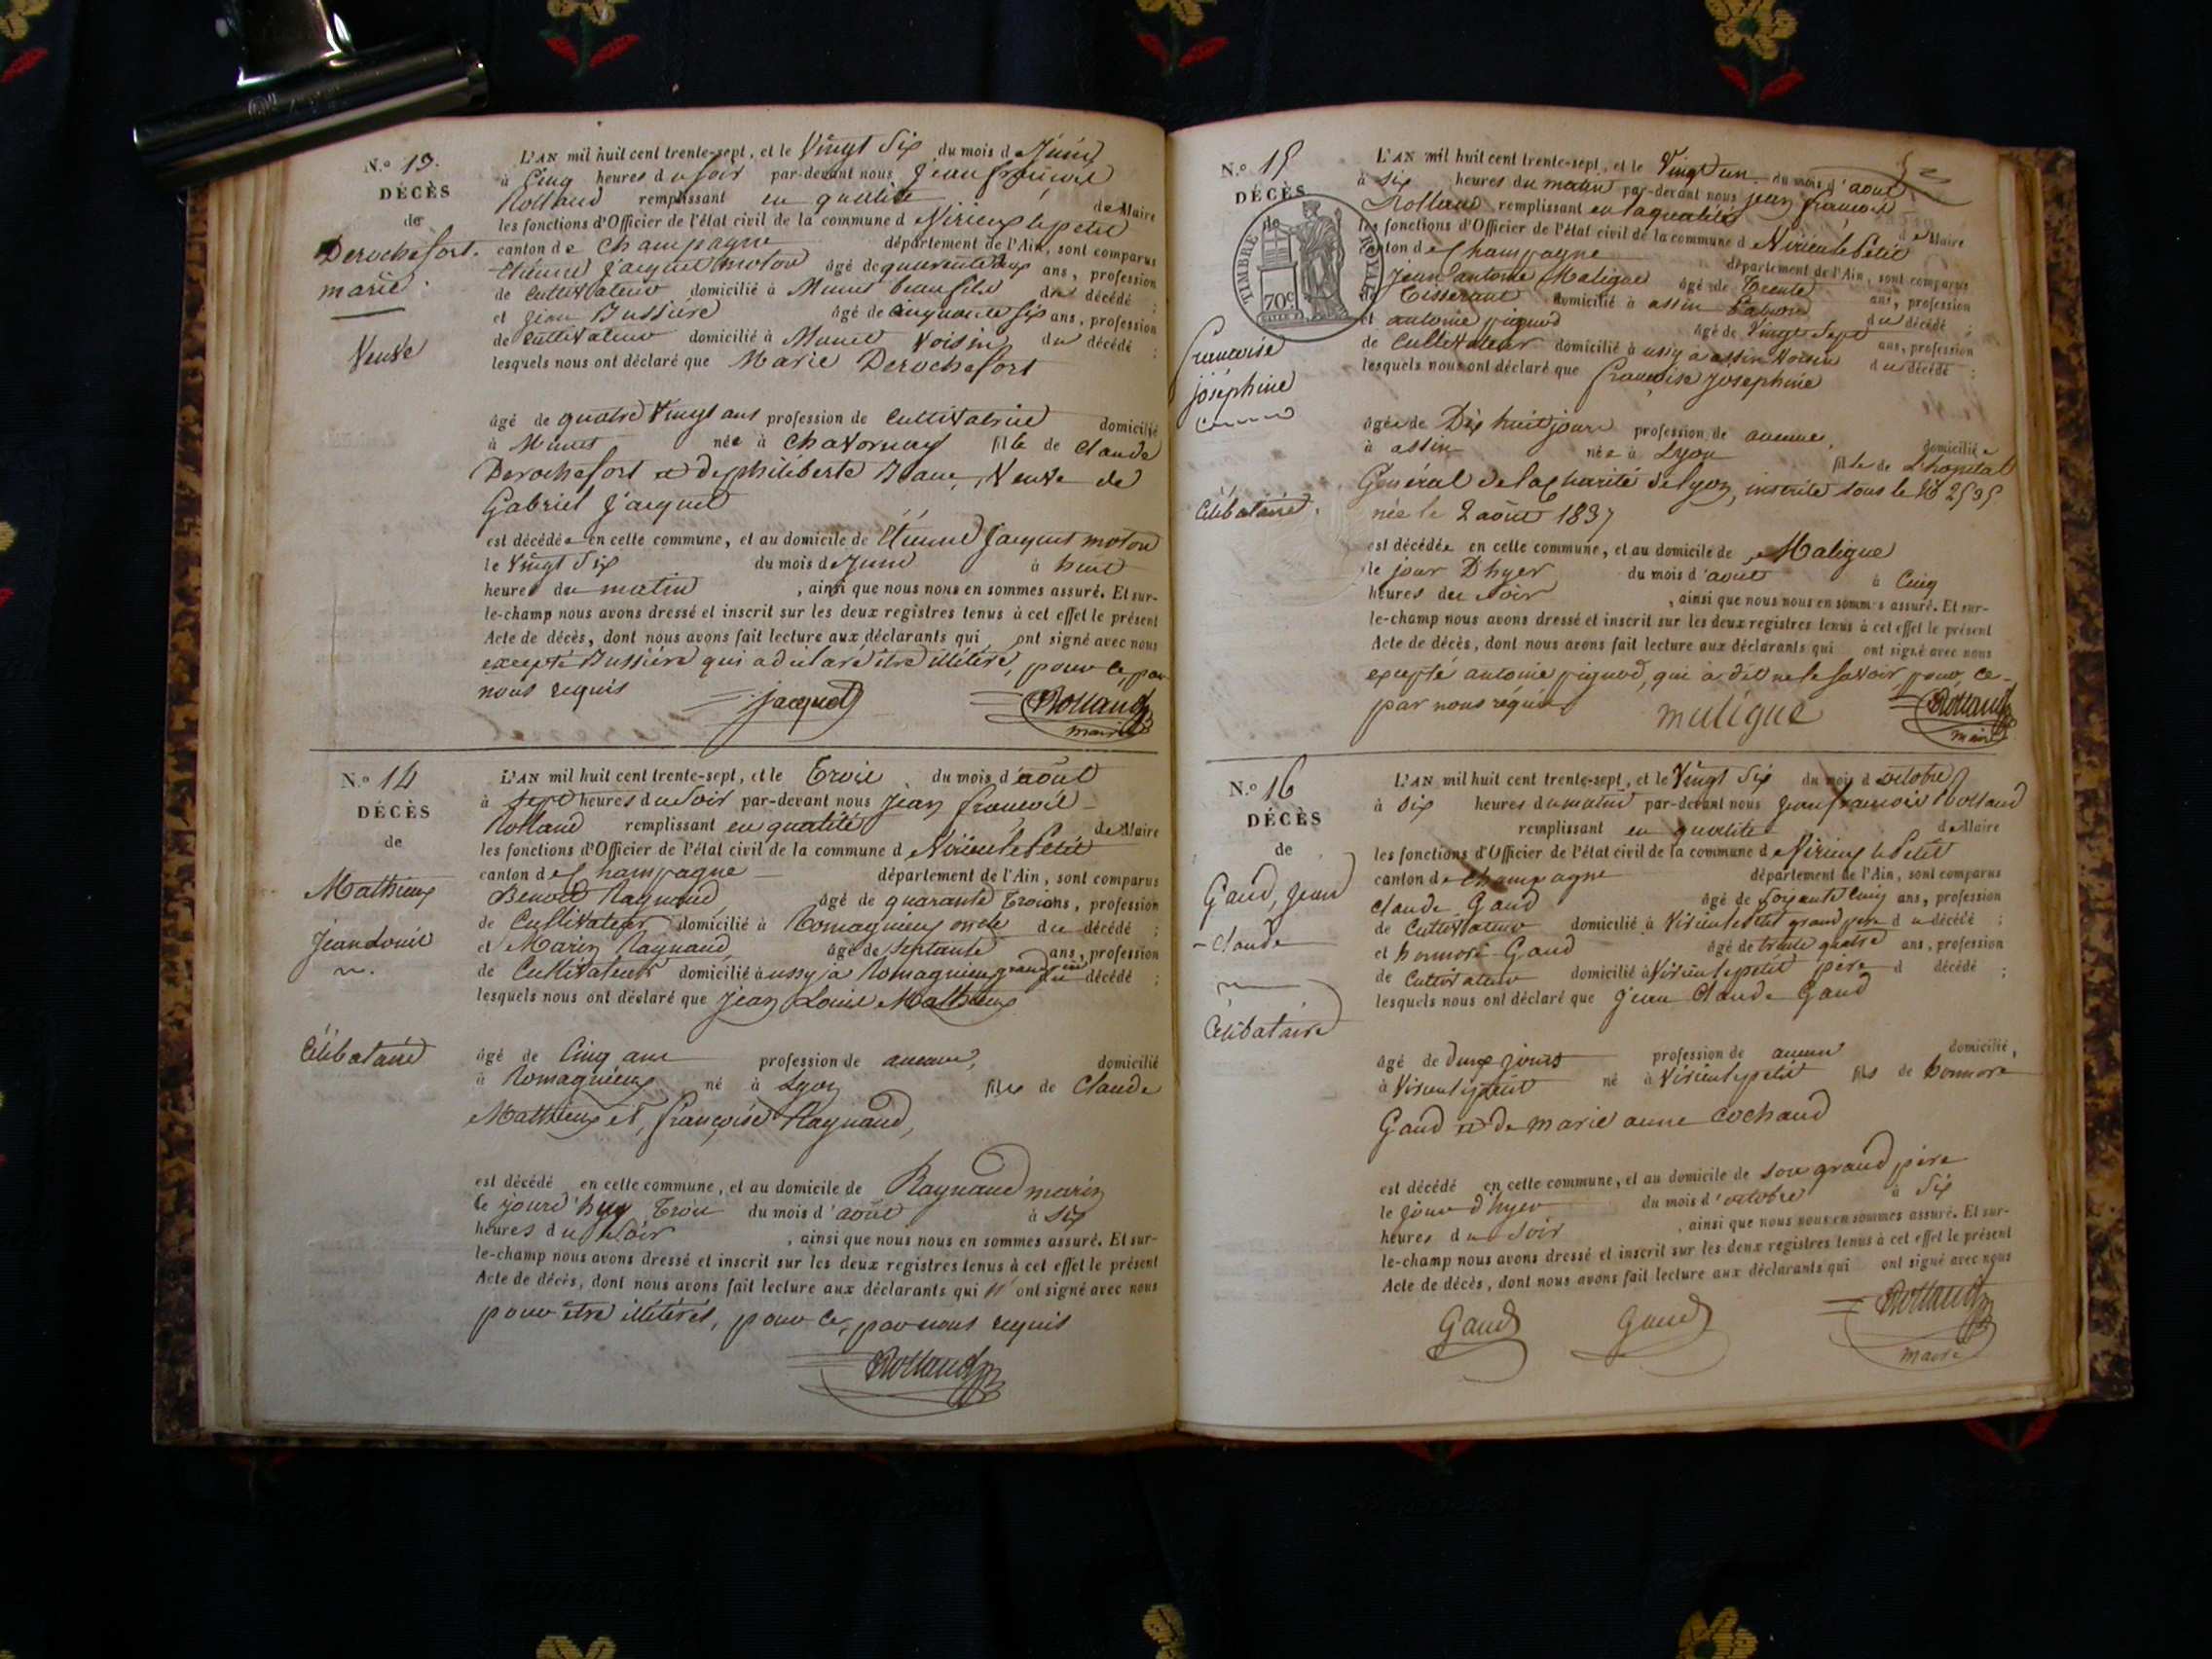 N.º 13.
DÉCÈS
de
Derochefort.
marie.
Veuve
L'AN mil huit cent trente-sept, et le Vingt Six du mois de Juin
à Cinq heures du soir par-devant nous Jean françois
Rolland remplissant en qualité de Maire
les fonctions d'Officier de l'état civil de la commune d Virieux le petit
canton de Champagne département de l'Ain, sont comparus
Etienne Jacquet moton âgé de quarente deux ans, profession
de Cultivateur domicilié à Munet beau fils du décédé ;
et Jean Bussiere âgé de Cinquante six ans, profession
de Cultivateur domicilié à Munet Voisin du décédé ;
lesquels nous ont déclaré que Marie Derochefort
âgé de quatre Vingt ans profession de Cultivatrice domicilié
à Munet née à Chavornay fille de Claude
Derochefort et de philiberte Veuve de
Gabriel Jacquet
est décédée en cette commune, et au domicile de Etienne Jacquet moton
le Vingt Six du mois de Juin à huit
heures du matin , ainsi que nous nous en sommes assuré. Et sur-
le-champ nous avons dressé et inscrit sur les deux registres tenus à cet effet le présent
Acte de décès, dont nous avons fait lecture aux déclarants qui ont signé avec nous
excepté Bussiere qui a déclaré être illitéré, pour ce, par
nous requis
Jacquet
Rolland
maire
N.º 14
DÉCÈS
de
Mathieux
Jean Louis
Célibataire
L'AN mil huit cent trente-sept, et le trois du mois d'août
à sept heures du Soir par-devant nous Jean françois
Rolland remplissant en qualité de Maire
les fonctions d'Officier de l'état civil de la commune d Virieu le Petit
canton de Champagne département de l'Ain, sont comparus
Benoit Raynaud âgé de quarante trois ans, profession
de Cultivateur domicilié à Romagnieux oncle du décédé ;
et Marin Raynaud âgé de Septante ans, profession
de Cultivateur domicilié à ussy à Romagnieux grand père du décédé ;
lesquels nous ont déclaré que Jean Louis Mathieux
âgé de Cinq ans profession de aucune, domicilié
à Romagnieux né à Lyon fils de Claude
Mathieux et, françoise Raynaud,
est décédé en cette commune, et au domicile de Raynaud marin
le jourd'huy trois du mois d'août à six
heures du Soir , ainsi que nous nous en sommes assuré. Et sur-
le-champ nous avons dressé et inscrit sur les deux registres tenus à cet effet le présent
Acte de décès, dont nous avons fait lecture aux déclarants qui n' ont signé avec nous
pour être illitérés, pour ce, par nous requis
Rolland
N.º 15
DÉCÈS
de
TIMBRE ROYAL
70c.
françoise
josephine
Célibataire.
L'AN mil huit cent trente-sept, et le Vingt un du mois d'août
à six heures du matin par-devant nous jean françois
Rolland remplissant en la qualité de Maire
les fonctions d'Officier de l'état civil de la commune d Virieu le Petit
canton de Champagne département de l'Ain, sont comparus
jean antoine Maligue âgé de Trente ans, profession
de Tisserant domicilié à assin Patron du décédé ;
et antoine pignod âgé de Vingt Sept ans, profession
de Cultivateur domicilié à ussy à assin Voisin du décédé ;
lesquels nous ont déclaré que françoise josephine
âgée de Dix huit jours profession de aucune, domicilié
à assin née à Lyon fille de L'hopital
Général de la Charité de lyon, inscrite sous le Nº 2535
née le 2 août 1837
est décédée en cette commune, et au domicile de Maligue
le jour D'hyer du mois d'août à Cinq
heures du Soir , ainsi que nous nous en sommes assuré. Et sur-
le-champ nous avons dressé et inscrit sur les deux registres tenus à cet effet le présent
Acte de décès, dont nous avons fait lecture aux déclarants qui ont signé avec nous
excepté antoine pignod, qui a dit ne le savoir pour, ce-
par nous réquis
maligue
Rolland
maire
N.º 16
DÉCÈS
de
Gaud, Jean
-Claude
Célibataire
L'AN mil huit cent trente-sept, et le Vingt Six du mois d octobre
à six heures du matin par-devant nous Jean francois Rolland
remplissant en qualité de Maire
les fonctions d'Officier de l'état civil de la commune d Virieux le Petit
canton de Champagne département de l'Ain, sont comparus
Claude Gaud âgé de Soixante Cinq ans, profession
de Cultivateur domicilié à Virieu le Petit grand père du décédé ;
et honnoré Gaud âgé de trente quatre ans, profession
de Cultivateur domicilié à Virieu le petit père d décédé ;
lesquels nous ont déclaré que Jean Claude Gaud
âgé de deux jours profession de aucune domicilié,
à Virieu le petit né à Virieu le petit fils de honnoré
Gaud et de marie anne Cochaud
est décédé en cette commune, et au domicile de son grand père
le jour d'hyer du mois d'octobre à Six
heures du Soir , ainsi que nous nous en sommes assuré. Et sur-
le-champ nous avons dressé et inscrit sur les deux registres tenus à cet effet le présent
Acte de décès, dont nous avons fait lecture aux déclarants qui ont signé avec nous
Gaud Gaud
Rolland
maire